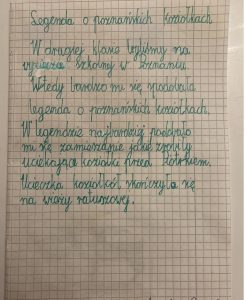 Legenda o poznańskich koziołkach
W drugiej klasie byliśmy na
wycieczce szkolnej w Poznaniu.
Wtedy bardzo mi się spodobała
legenda o poznańskich koziołkach.
W legendzie najbardziej podobało
mi się zamieszanie jakie zrobiły
uciekające koziołki przed
Ucieczka koziołków skończyła się
na wieży ratuszowej.